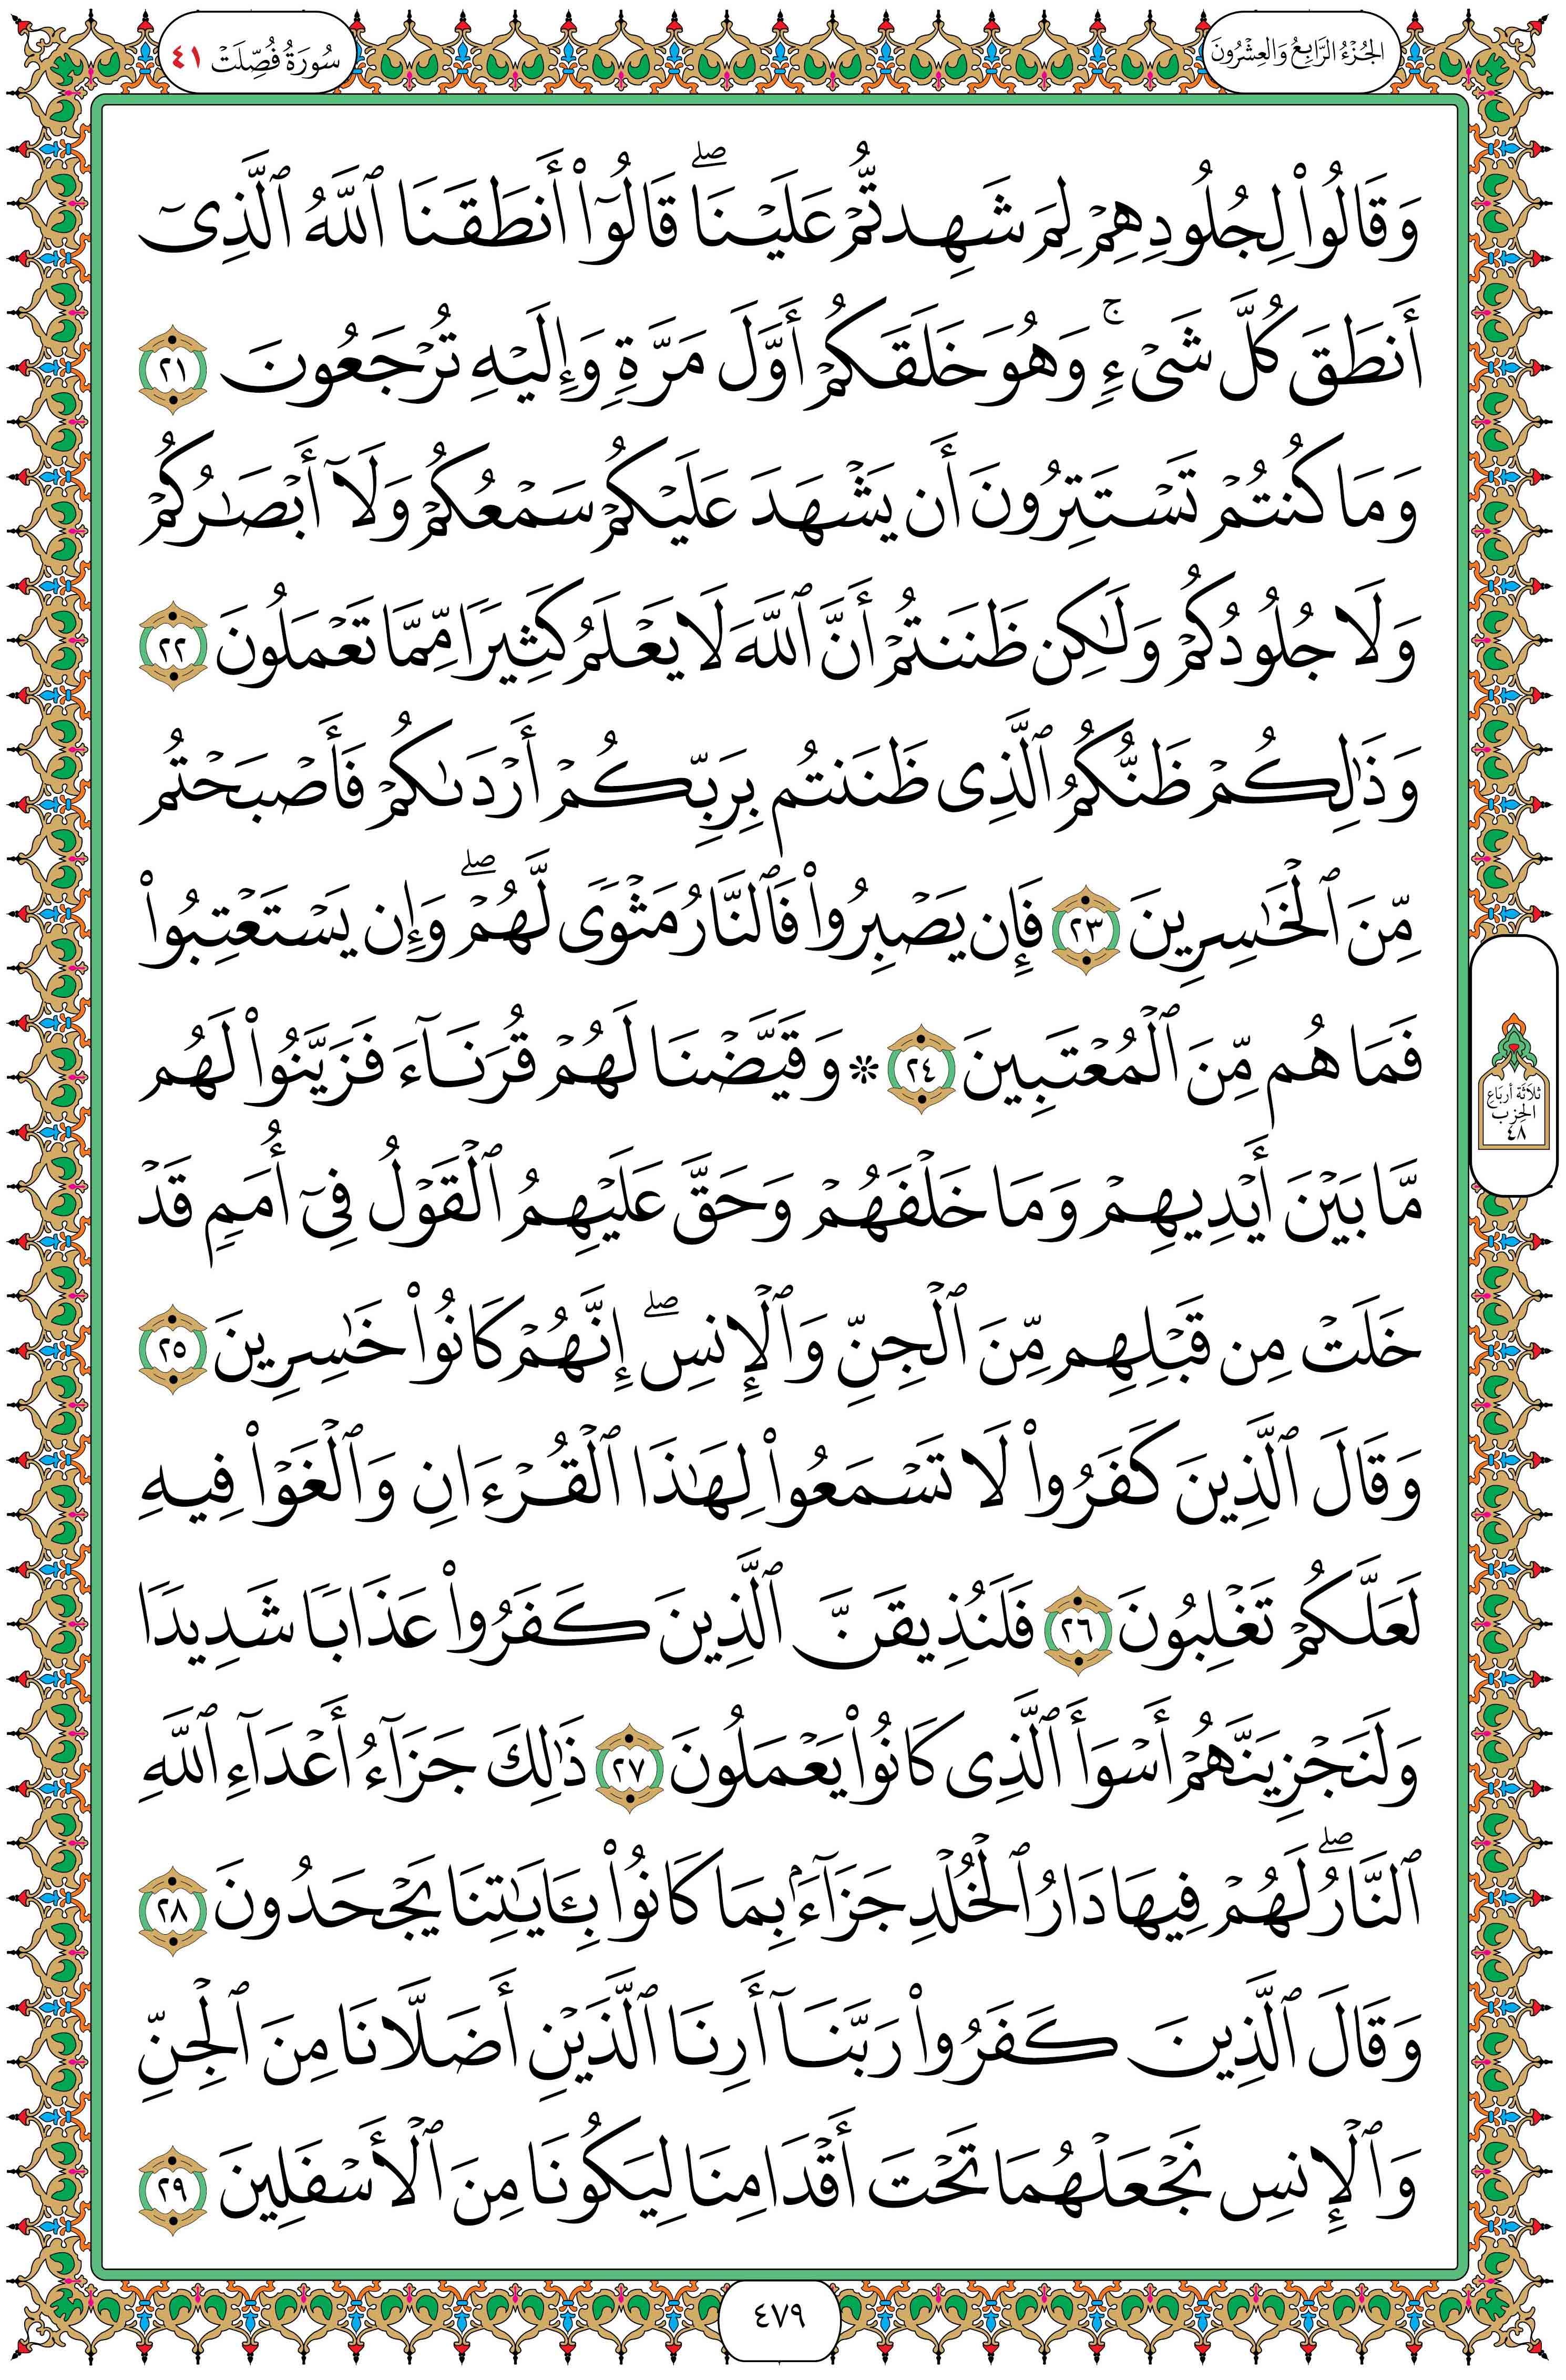 الجُزْءُ الرَّابِعُ وَالعِشْرُونَ
سُورَةُ فُصِّلَتْ ٤١
وَقَالُوا۟ لِجُلُودِهِمْ لِمَ شَهِدتُّمْ عَلَيْنَا ۖ قَالُوٓا۟ أَنطَقَنَا ٱللَّهُ ٱلَّذِىٓ
أَنطَقَ كُلَّ شَىْءٍ ۚ وَهُوَ خَلَقَكُمْ أَوَّلَ مَرَّةٍ وَإِلَيْهِ تُرْجَعُونَ ٢١
وَمَا كُنتُمْ تَسْتَتِرُونَ أَن يَشْهَدَ عَلَيْكُمْ سَمْعُكُمْ وَلَآ أَبْصَـٰرُكُمْ
وَلَا جُلُودُكُمْ وَلَـٰكِن ظَنَنتُمْ أَنَّ ٱللَّهَ لَا يَعْلَمُ كَثِيرًا مِّمَّا تَعْمَلُونَ ٢٢
وَذَٰلِكُمْ ظَنُّكُمُ ٱلَّذِى ظَنَنتُم بِرَبِّكُمْ أَرْدَىٰكُمْ فَأَصْبَحْتُم
مِّنَ ٱلْخَـٰسِرِينَ ٢٣ فَإِن يَصْبِرُوا۟ فَٱلنَّارُ مَثْوًى لَّهُمْ ۖ وَإِن يَسْتَعْتِبُوا۟
فَمَا هُم مِّنَ ٱلْمُعْتَبِينَ ٢٤ ۞ وَقَيَّضْنَا لَهُمْ قُرَنَآءَ فَزَيَّنُوا۟ لَهُم
مَّا بَيْنَ أَيْدِيهِمْ وَمَا خَلْفَهُمْ وَحَقَّ عَلَيْهِمُ ٱلْقَوْلُ فِىٓ أُمَمٍ قَدْ
خَلَتْ مِن قَبْلِهِم مِّنَ ٱلْجِنِّ وَٱلْإِنسِ ۖ إِنَّهُمْ كَانُوا۟ خَـٰسِرِينَ ٢٥
وَقَالَ ٱلَّذِينَ كَفَرُوا۟ لَا تَسْمَعُوا۟ لِهَـٰذَا ٱلْقُرْءَانِ وَٱلْغَوْا۟ فِيهِ
لَعَلَّكُمْ تَغْلِبُونَ ٢٦ فَلَنُذِيقَنَّ ٱلَّذِينَ كَفَرُوا۟ عَذَابًا شَدِيدًا
وَلَنَجْزِيَنَّهُمْ أَسْوَأَ ٱلَّذِى كَانُوا۟ يَعْمَلُونَ ٢٧ ذَٰلِكَ جَزَآءُ أَعْدَآءِ ٱللَّهِ
ٱلنَّارُ ۖ لَهُمْ فِيهَا دَارُ ٱلْخُلْدِ جَزَآءًۢ بِمَا كَانُوا۟ بِـَٔايَـٰتِنَا يَجْحَدُونَ ٢٨
وَقَالَ ٱلَّذِينَ كَفَرُوا۟ رَبَّنَآ أَرِنَا ٱلَّذَيْنِ أَضَلَّانَا مِنَ ٱلْجِنِّ
وَٱلْإِنسِ نَجْعَلْهُمَا تَحْتَ أَقْدَامِنَا لِيَكُونَا مِنَ ٱلْأَسْفَلِينَ ٢٩
ثلاثة أرباع
الحزب
٤٨
٤٧٩